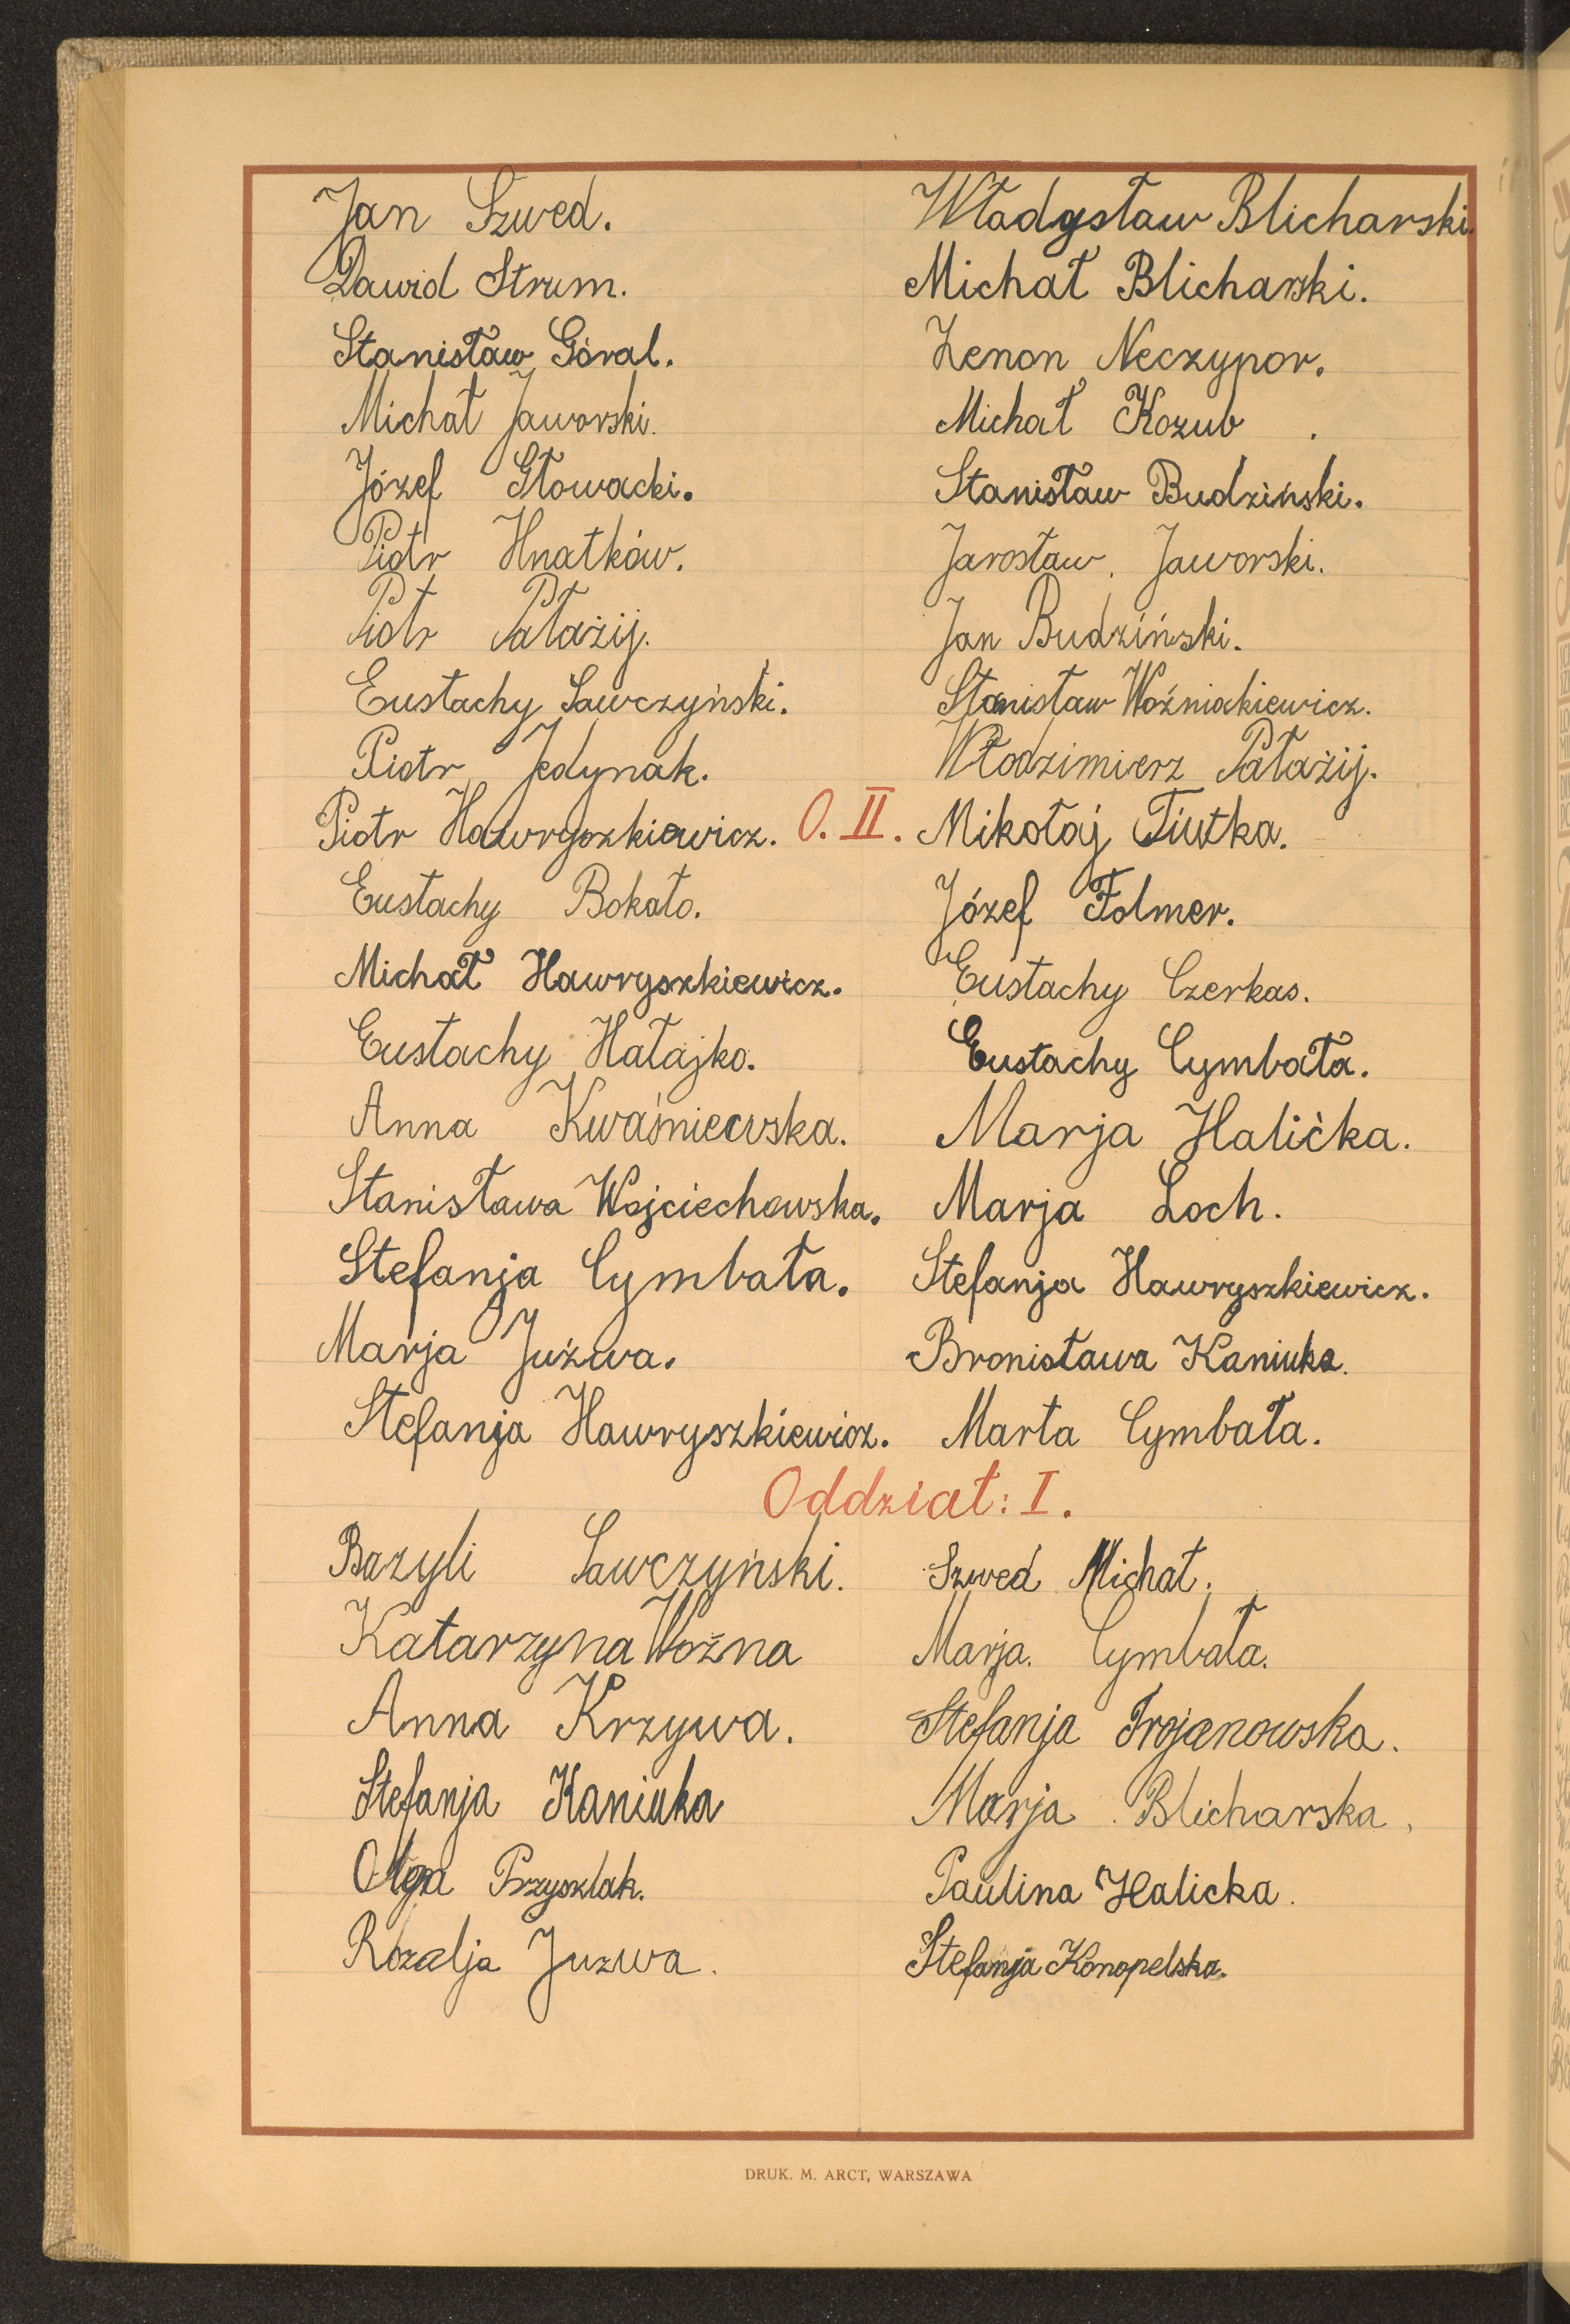 Jan Szwed.
Dawid Strum.
Stanisław Góral.
Michał Jaworski.
Józef Głowacki.
Piotr Hnatków.
Piotr Pałażij.
Eustachy Sawczyński.
Piotr Jedynak.
Piotr Hawryszkiewicz.
Eustachy Bokało.
Michał Hawryszkiewicz.
Eustachy Hałajko.
Anna Kwaśniewska.
Stanisława Wojciechowska.
Stefanja Cymbała.
Marja Juźwa.
Stefanja Hawryszkiewicz.
Władysław Blicharski.
Michał Blicharski.
Zenon Neczypor.
Michał Kozub.
Stanisław Budziński.
Jarosław Jaworski.
Jan Budziński.
Stanisław Woźniakiewicz.
Włodzimierz Pałażij.
O. II.
Mikołaj Tiutka.
Józef Folmer.
Eustachy Czerkas.
Eustachy Cymbała.
Marja Halicka.
Marja Loch.
Stefanja Hawryszkiewicz.
Bronisława Kaniuka.
Marta Cymbała.
Oddział: I.
Bazyli Sawczyński.
Katarzyna Woźna
Anna Krzywa.
Stefanja Kaniuka
Olga Przyszlak.
Rozalja Juzwa.
Szwed Michał.
Marja. Cymbała.
Stefanja Trojanowska.
Marja Blicharska,
Paulina Halicka.
Stefanja Konopelska.
DRUK. M. ARCT, WARSZAWA